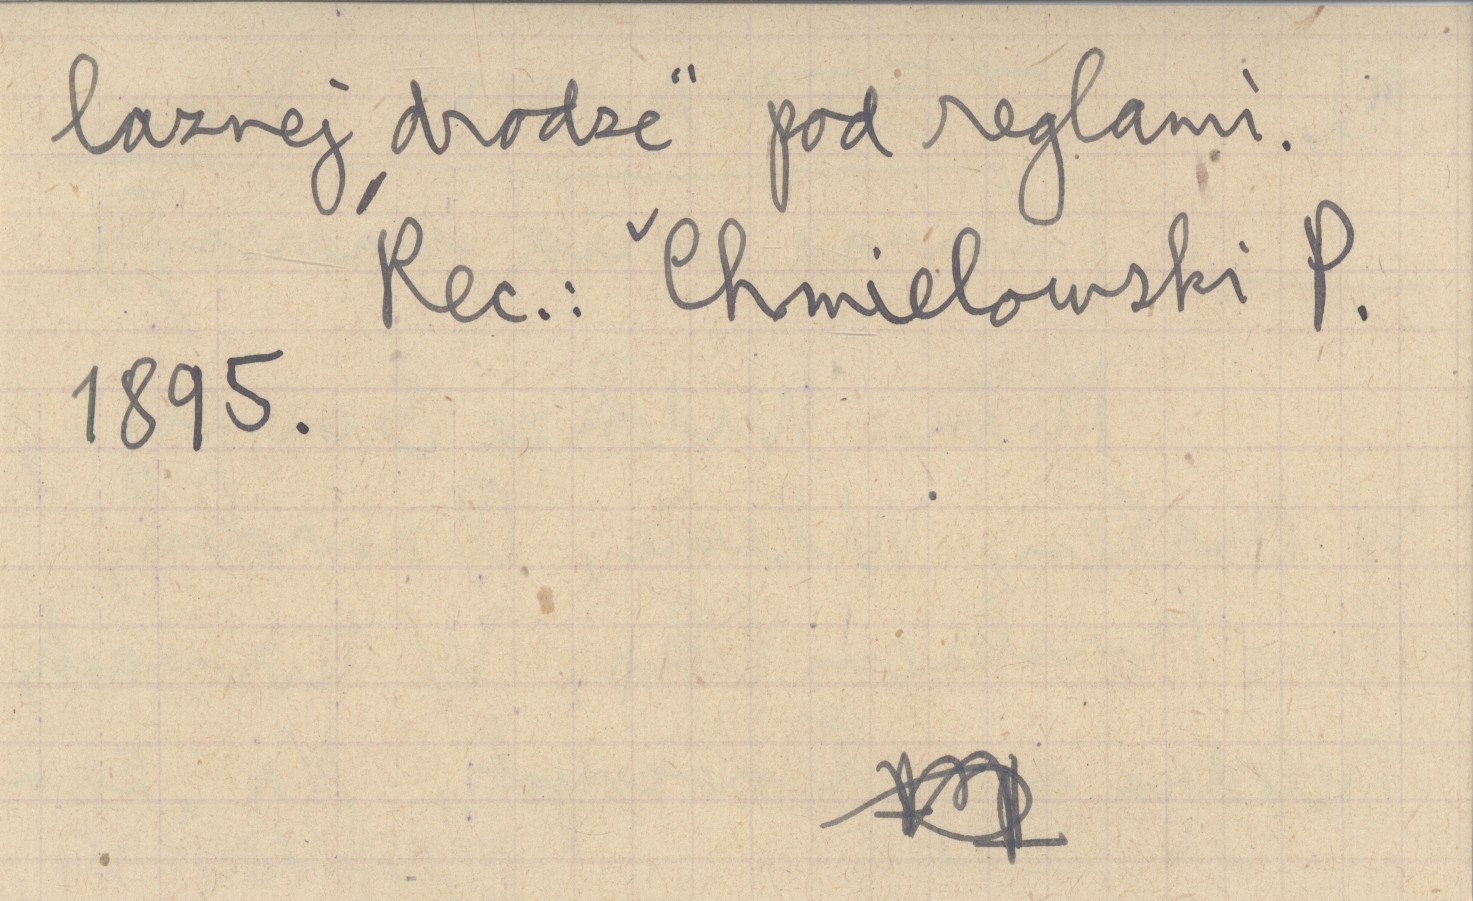 laznej drodze" pod reglami.
Rec.: Chmielowski P.
1895.